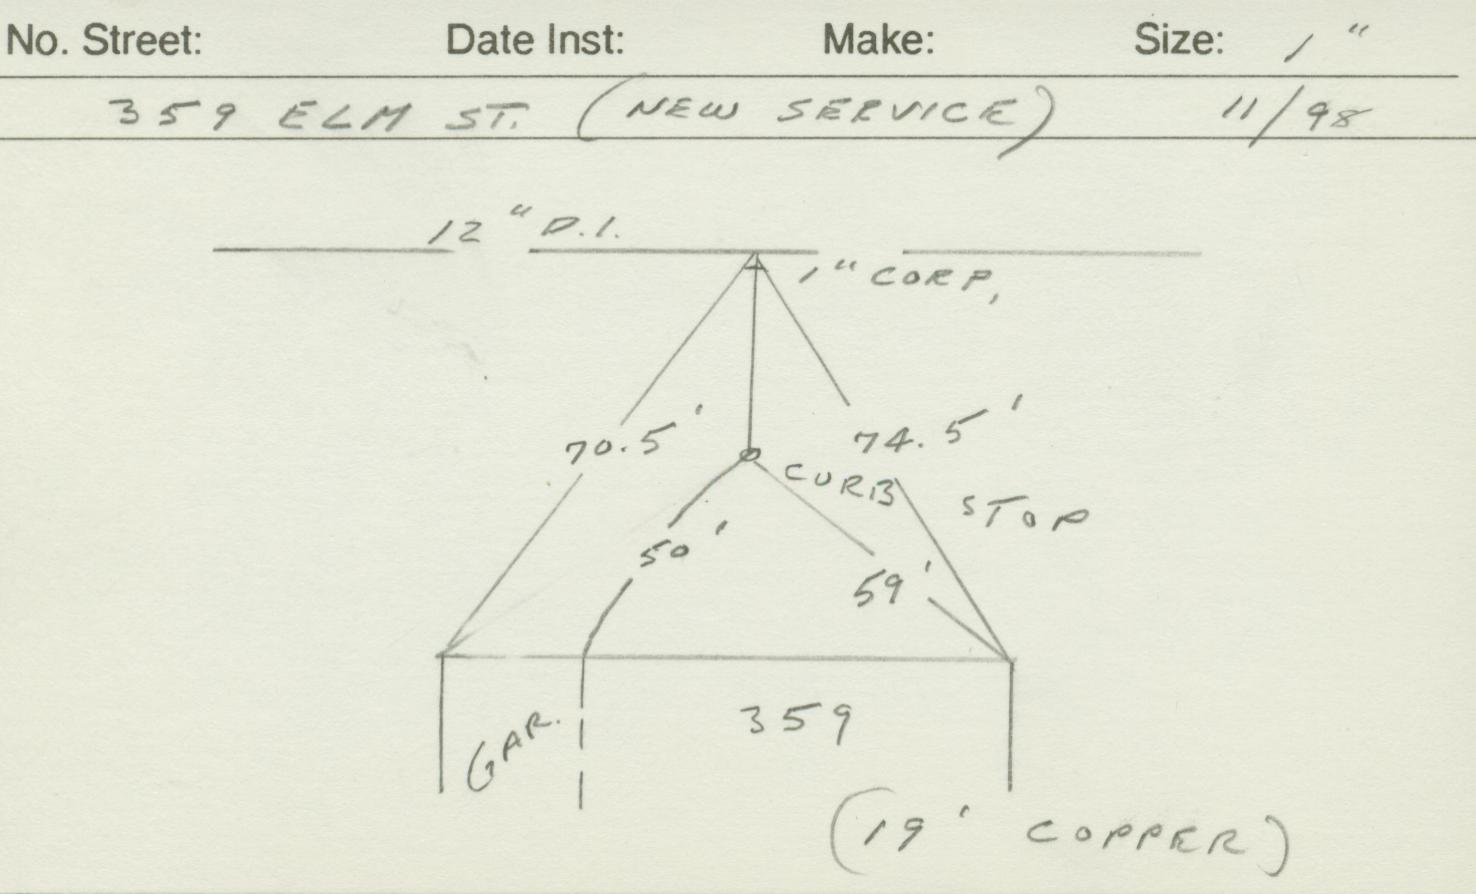 No. Street: Date Inst: Make: Size: 1"
359 ELM ST. (NEW SERVICE) 11/98
12" D.I.
1" CORP.
70.5' 74.5'
CURB STOP
50'
59'
GAR. 359
(19' COPPER)